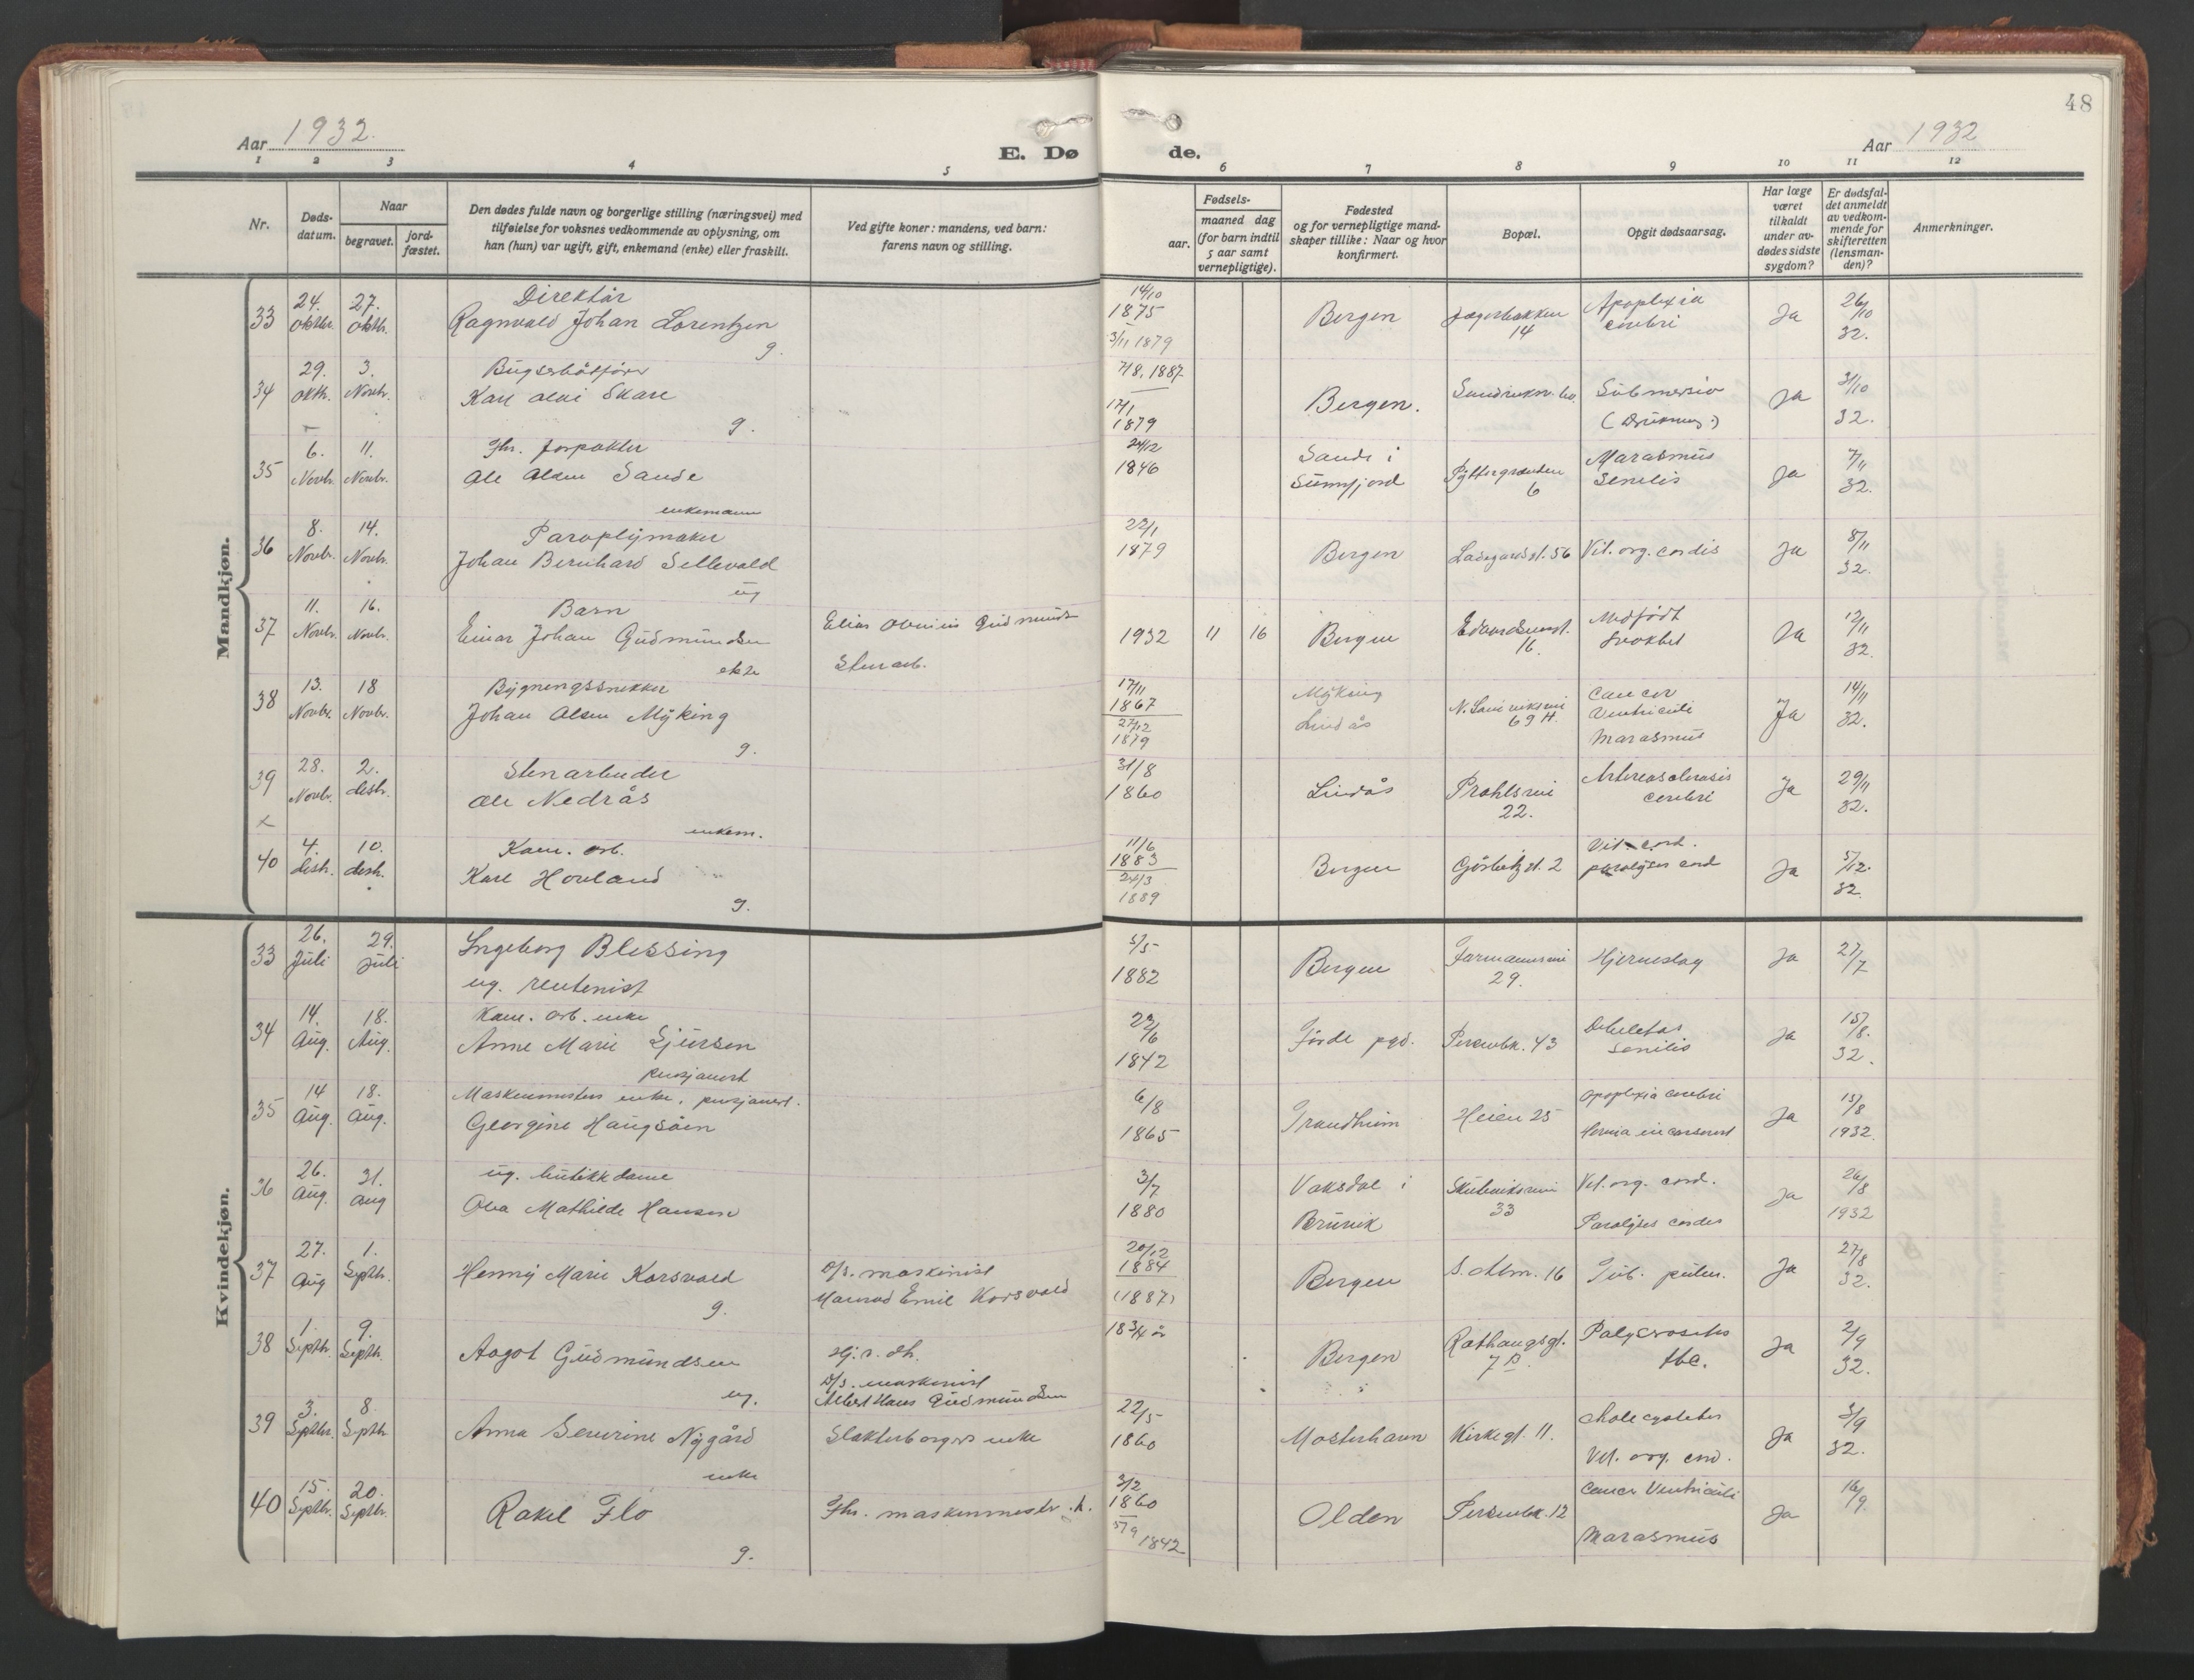 48
Aar 1932.
E. Dø
de.
Aar 1932
1 2 3 4 5 6 7 8 9 10 11 12
Nr.
Døds-
datum.
Naar
begravet.
jord-
fæstet.
Den dødes fulde navn og borgerlige stilling (næringsvei) med
tilføielse for voksnes vedkommende av oplysning, om
han (hun) var ugift, gift, enkemand (enke) eller fraskilt.
Ved gifte koner: mandens, ved barn:
farens navn og stilling.
Fødsels-
aar.
maaned dag
(for barn indtil
5 aar samt
vernepligtige).
Fødested
og for vernepligtige mand-
skaper tillike: Naar og hvor
konfirmert.
Bopæl.
Opgit dødsaarsag.
Har læge
været
tilkaldt
under av-
dødes sidste
sygdom?
Er dødsfal-
det anmeldt
av vedkom-
mende for
skifteretten
(lensman-
den)?
Anmerkninger.
Mandkjøn.
33 24. oktbr. 27. oktb. Direktør
Ragnvald Johan Lorentzen
g.
14/10 1875
3/11 1879
Bergen
14
Apoplexia cerebri
Ja
26/10 32.
34 29. oktb. 3. Novbr.
Skare
g.
7/8. 1887
17/1 1879
Bergen.
Submersio
Ja
31/10 32.
35 6. Novbr. 11. Novbr.
Fhv. forpakter
Ole Olsen Sande
enkemann
24/12 1846
Sande i
Sunnfjord
6
Marasmus
Senilis
Ja
7/11 32.
36 8. Novbr. 14. Novbr.
Paraplymaker
Johan Bernhard Sellevold
ug
22/1 1879
Bergen
Ladegårdsgt. 56
Vit. org. cordis
Ja
8/11 32.
37 11. Novbr. 16. Novbr.
Barn
Einar Johan Gudmundsen
ekte
Elias
Stenarb.
1932 11 16
Bergen
16.
Medfødt
svakhet
Ja
12/11 32.
38 13. Novbr. 18 Novbr.
Bygningssnekker
Johan Olsen Myking
g.
17/11 1867
27/12 1879
Myking
Lindås
69 H.
Cancer
Ventriculi
Marasmus
Ja
14/11 32.
39 28. Novbr. 2. desbr.
Stenarbeider
Ole Nedrås
enkem.
31/8 1860
Lindås
Prahlsvei
22.
Arteriosclerosis
cerebri
Ja
29/11 32.
40 4. desb. 10. desb.
Kom. arb.
Karl Hovland
g.
11/6 1883
24/3 1889
Bergen
Gørbitzgt. 2
Vit. cord.
paralyses cord
Ja
5/12. 32.
Kvindekjøn.
33 26. Juli 29. Juli
Ingeborg Blessing
ug. rentenist
5/5 1882
Bergen
29.
Hjerneslag
Ja
27/7
34 14. Aug. 18. Aug.
Kom. arb. enke
Anne Marie Sjursen
pensjonert
22/6 1842
Førde pgd.
Persenbk. 43
Debilitas
senilis
Ja
15/8. 32.
35 14 Aug. 18. Aug.
Maskinmesters enke, pensjonert.
Georgine Haugsåen
6/8 1865
Trondheim
Heien 25
Apoplexia cerebri
Hernia incarserert
Ja
15/8 1932.
36 26. Aug. 31. aug
ug. butikkdame
Olea Mathilde Hansen
3/7 1880
Vaksdal i
Bruvik
Skuteviksvei
33
Vit. org. cord.
Paralyses cordis
Ja
26/8 1932
37 27. Aug 1. Septb.
Henny Marie Korsvold
g.
D/s. maskinist
Emil Korsvold
20/12 1884
(1887)
Bergen
S. Alm. 16
Tub. pulm.
Ja
27/8 32.
38 1. Septb. 9. Septb.
Aagot Gudmundsen
ug.
Hj. v. dh.
D/s. maskinist
Albert Hans Gudmundsen
18 3/4 år
Bergen
Rothaugsgt.
7 B.
tbc.
Ja
2/9 32.
39 3. Septbr. 8. Septb
Anna Severine Nygård
enke
Slakterborgers enke
22/5 1860
Mosterhavn
Kirkegt. 11.
Cholecystites
Vit. org. cord.
Ja
5/9 32.
40 15. Septbr. 20. Septbr.
Rakel Flo
g.
Fhv. maskinmestr. h.
3/2 1860
5/9 1842
Olden
Persenbk. 12
Cancer Ventriculi
Marasmus
Ja
16/9.